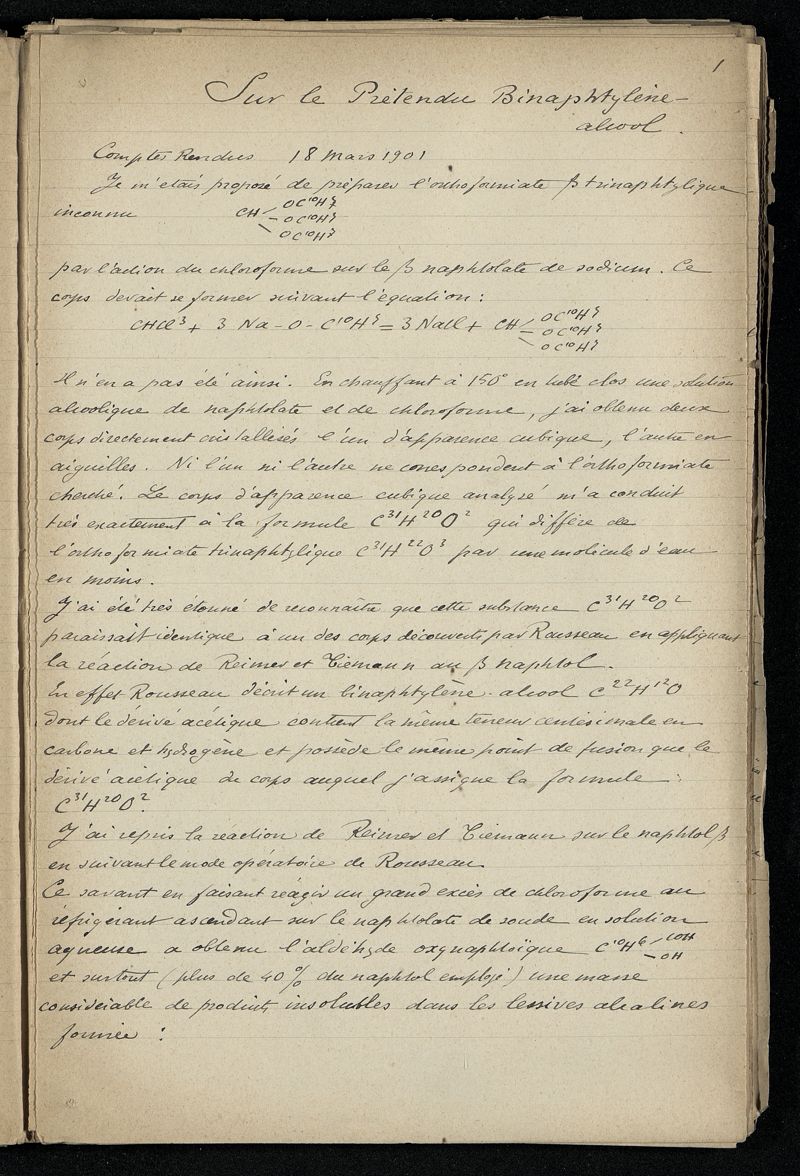 1
Sur le Prétendu Binaphtylène-
alcool.
Comptes Rendus 18 Mars 1901
Je m'étais proposé de préparer l'orthoformiate β trinaphtylique
inconnu CH OC¹⁰H⁷
OC¹⁰H⁷
OC¹⁰H⁷
par l'action du chloroforme sur le β naphtolate de sodium. Ce
corps devait se former suivant l'équation :
CHCl³ + 3 Na-O-C¹⁰H⁷ = 3 NaCl + CH OC¹⁰H⁷
OC¹⁰H⁷
OC¹⁰H⁷
Il n'en a pas été ainsi. En chauffant à 150° en tube clos une solution
alcoolique de naphtolate et de chloroforme, j'ai obtenu deux
corps directement cristallisés l'un d'apparence cubique, l'autre en
aiguilles. Ni l'un ni l'autre ne correspondent à l'orthoformiate
cherché. Le corps d'apparence cubique analysé m'a conduit
très exactement à la formule C³¹H²⁰O² qui diffère de
l'orthoformiate trinaphtylique C³¹H²²O³ par une molécule d'eau
en moins.
J'ai été très étonné de reconnaître que cette substance C³¹H²⁰O²
paraissait identique à un des corps découverts par Rousseau en appliquant
la réaction de Reimer et Tiemann au β naphtol.
En effet Rousseau décrit un binaphtylène-alcool C²²H¹²O
dont le dérivé acétique contient la même teneur centésimale en
carbone et hydrogène et possède le même point de fusion que le
dérivé acétique du corps auquel j'assigne la formule :
C³¹H²⁰O².
J'ai repris la réaction de Reimer et Tiemann sur le naphtol β
en suivant le mode opératoire de Rousseau
Ce savant en faisant réagir un grand excès de chloroforme au
réfrigérant ascendant sur le naphtolate de soude en solution
aqueuse a obtenu l'aldéhyde oxynaphtoïque C¹⁰H⁶ COH
OH
et surtout (plus de 40% du naphtol employé) une masse
considérable de produits insolubles dans les lessives alcalines
formée :